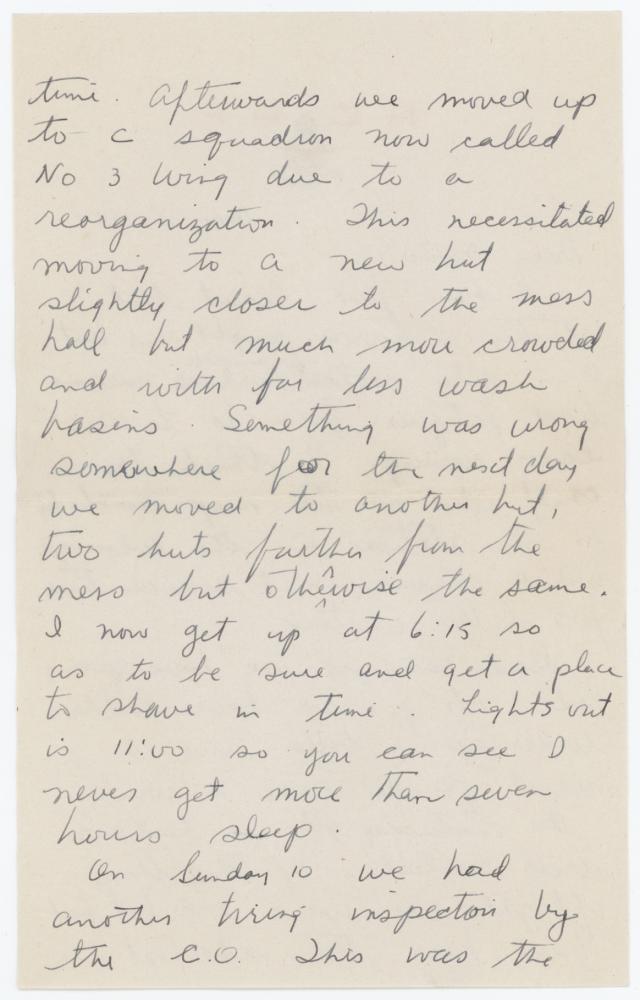 time. Afterwards we moved up
to C squadron now called
No 3 Wing due to a
reorganization. This necessitated
moving to a new hut
slightly closer to the mess
hall but much more crowded
and with far less wash
basins. Something was wrong
somewhere for the next day
we moved to another hut,
two huts farther from the
mess but otherwise the same.
I now get up at 6:15 so
as to be sure and get a place
to shave in time. Lights out
is 11:00 so you can see I
never get more than seven
hours sleep.
On Sunday 10 we had
another tiring inspection by
the C.O. This was the